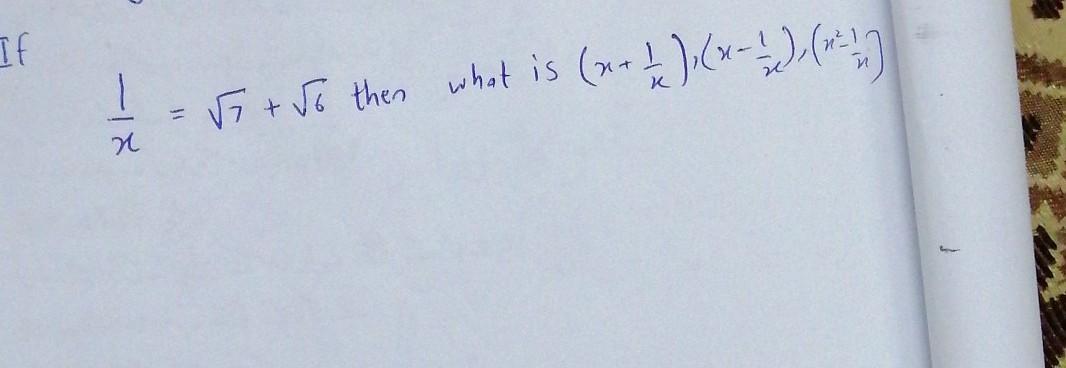 If
1/x = √7 + √6 then what is (x + 1/x), (x - 1/x), (x² - 1/x)